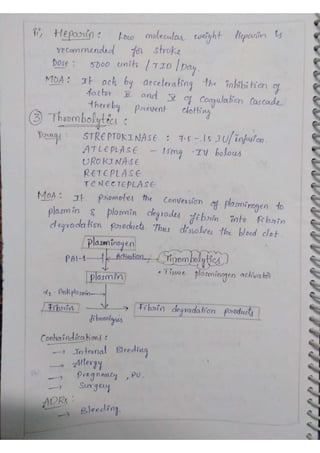 ii) Heparin : Low molecular weight Heparin is
recommended for stroke
Dose : 5000 units / TID / Day.
MOA : It act by accelerating the inhibition of
factor II and X of Coagulation Cascade
thereby prevent clotting
③ Thrombolytics :
Drugs : STREPTOKINASE : 7.5 - 15 IU/infusion
ATLEPLASE - 15mg - IV bolous
UROKINASE
RETEPLASE
TENECTEPLASE
MOA : It promotes the conversion of plasminogen to
plasmin & plasmin degrades fibrin into fibrin
degradation products. Thus dissolves the blood clot.
Plasminogen
PAI-1 Activation Thrombolytics
• Tissue plasminogen activator
plasmin
α2 - Antiplasmin
Fibrin → Fibrin degradation products
fibrinolysis
Contraindications :
→ Internal Bleeding
→ Allergy
→ Pregnancy, PU.
→ Surgery
ADRs :
→ Bleeding.